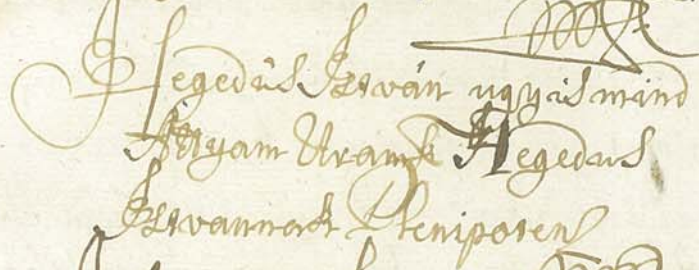 Hegedüs Istvan ugy is mind
Attyam Uramk Hegedus
Istvannak Plenipoten